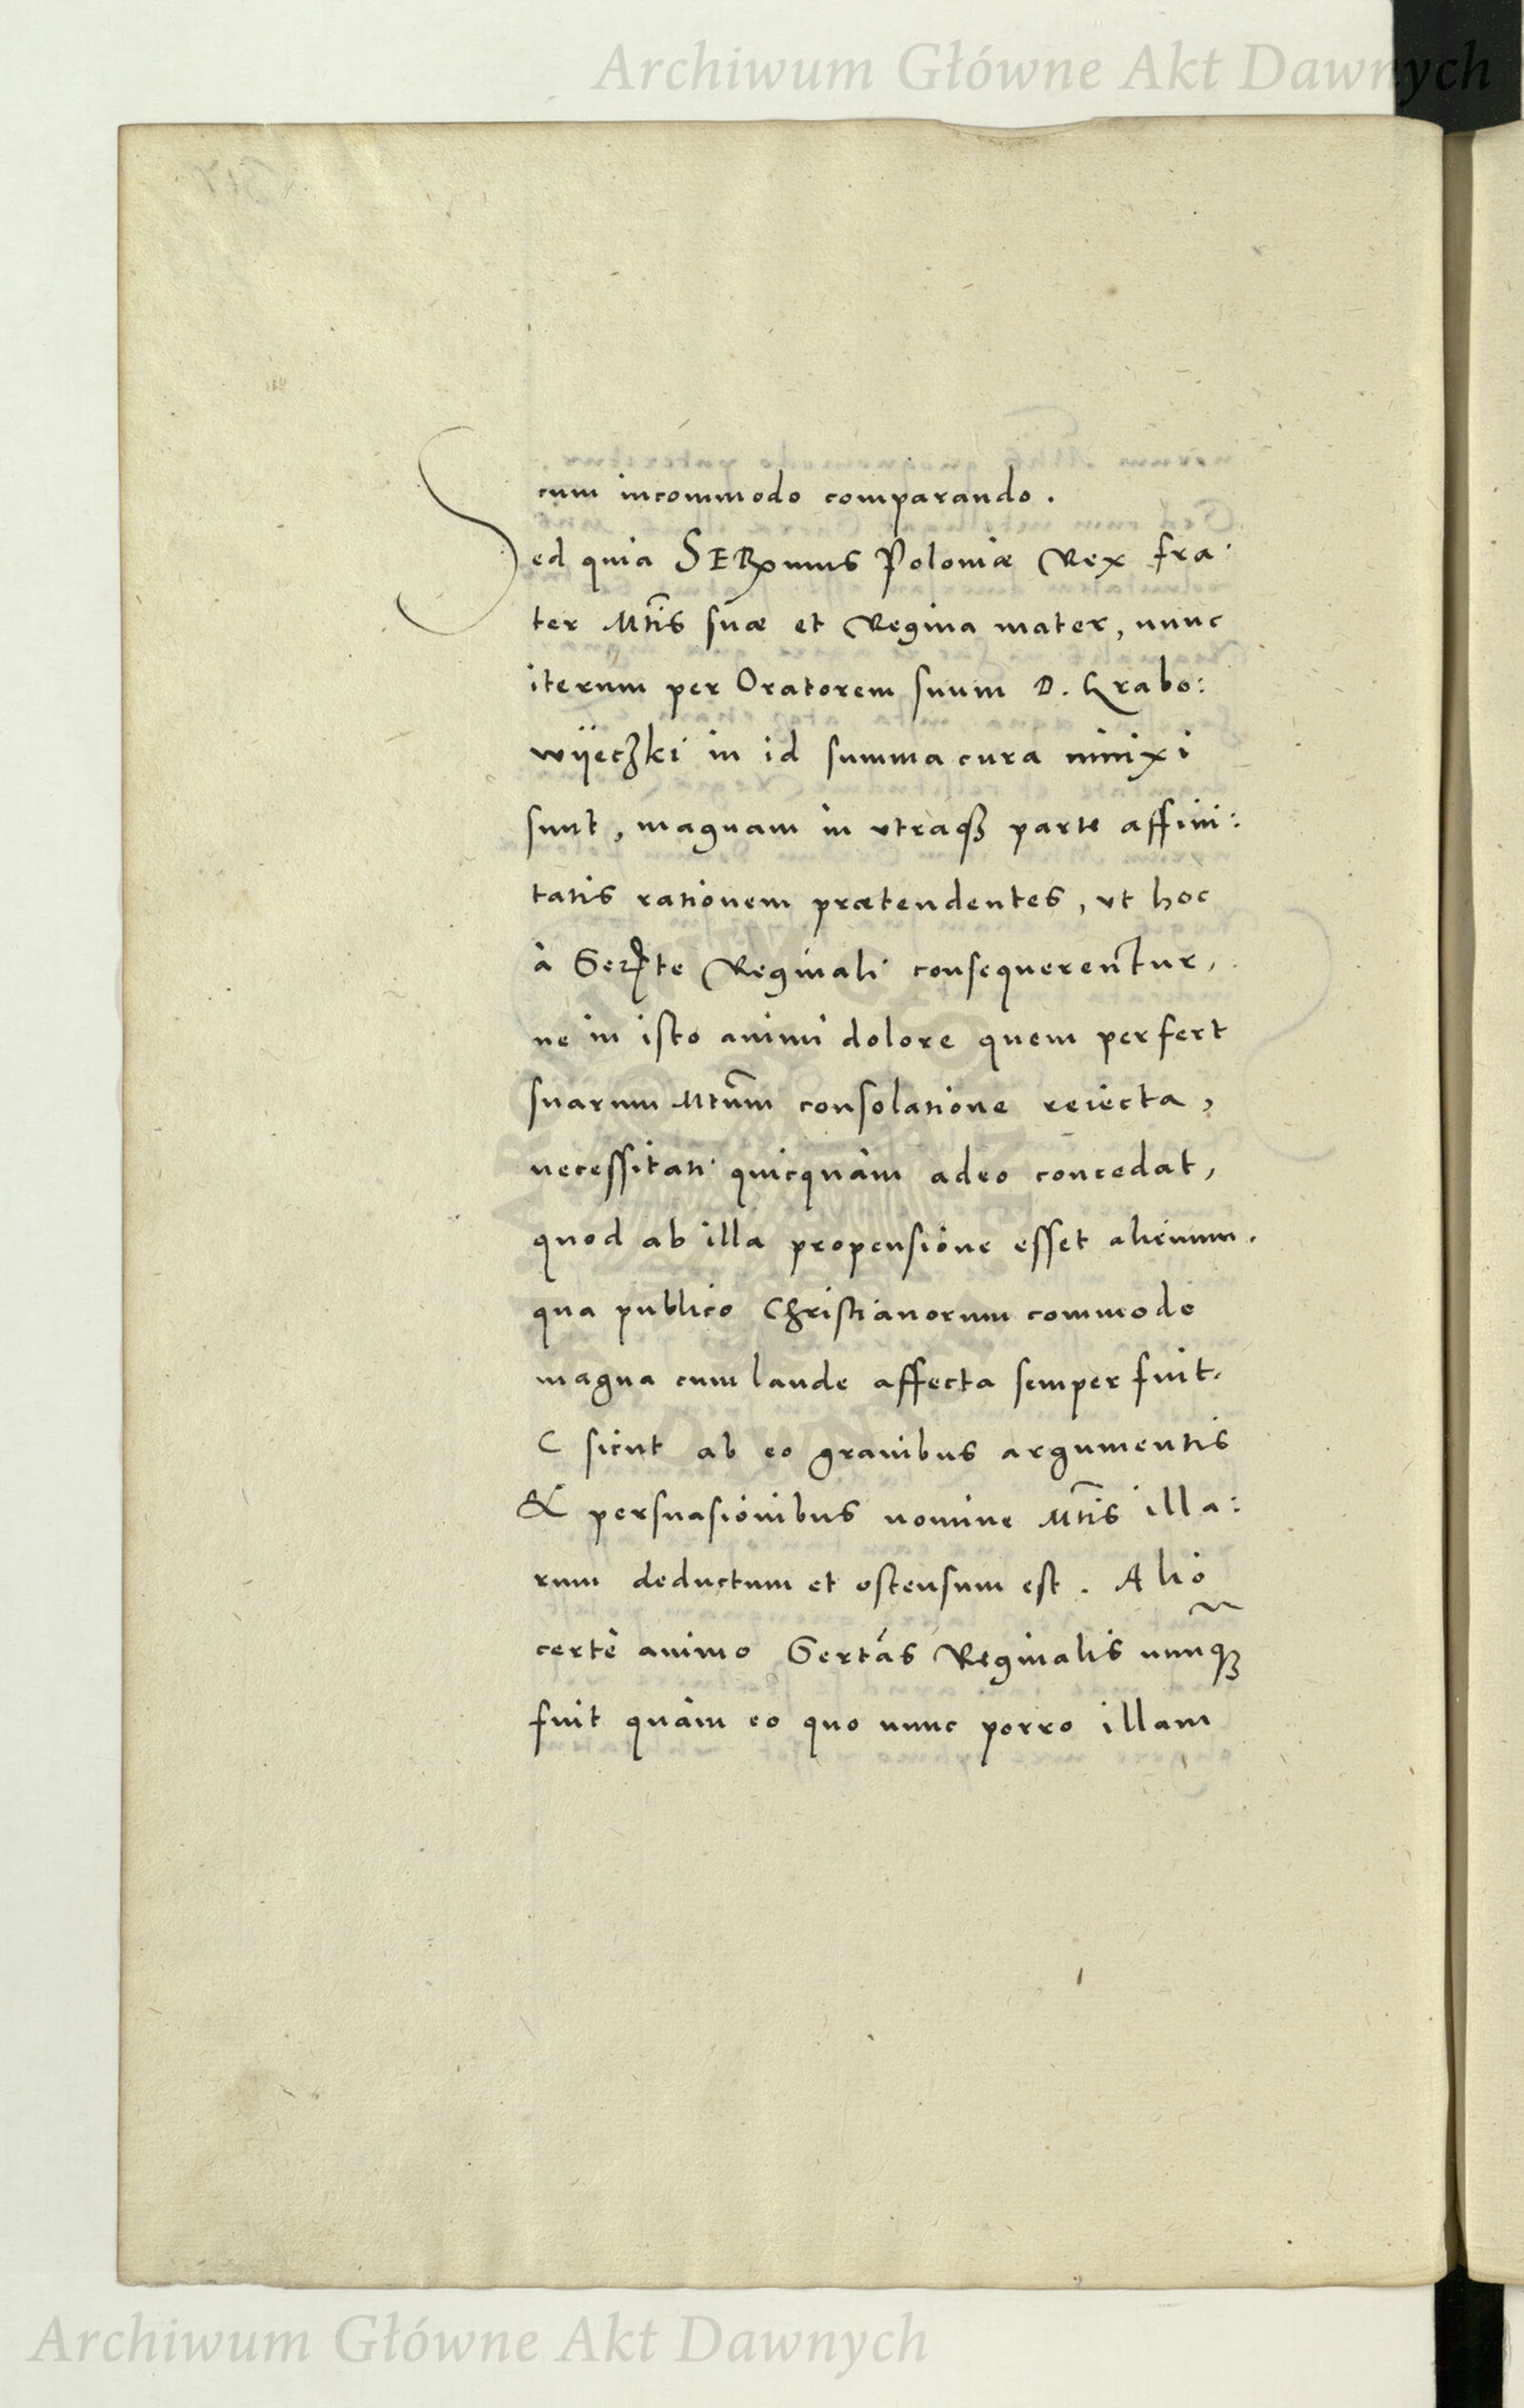 Archiwum Główne Akt Dawnych
cum incommodo comparando.
Sed quia SERmus Poloniæ Rex fra:
ter Mtis suæ et Regina mater, nunc
iterum per Oratorem suum D. Grabo:
wÿeczki in id summa cura innixi
sunt, magnam in vtraqȝ parte affini:
tatis rationem prætendentes, vt hoc
à Serte Reginali consequerentur,
ne in isto animi dolore quem perfert
suarum Mtum consolatione reiecta,
necessitati quicquàm adeo concedat,
quod ab illa propensione esset alienum.
qua publico Christianorum commodo
magna cum laude affecta semper fuit.
C sicut ab eo grauibus argumentis
& persuasionibus nomine Mtis illa:
rum deductum et ostensum est. Alio
certè animo Sertas Reginalis nunqȝ
fuit quàm eo quo nunc porro illam
Archiwum Główne Akt Dawnych